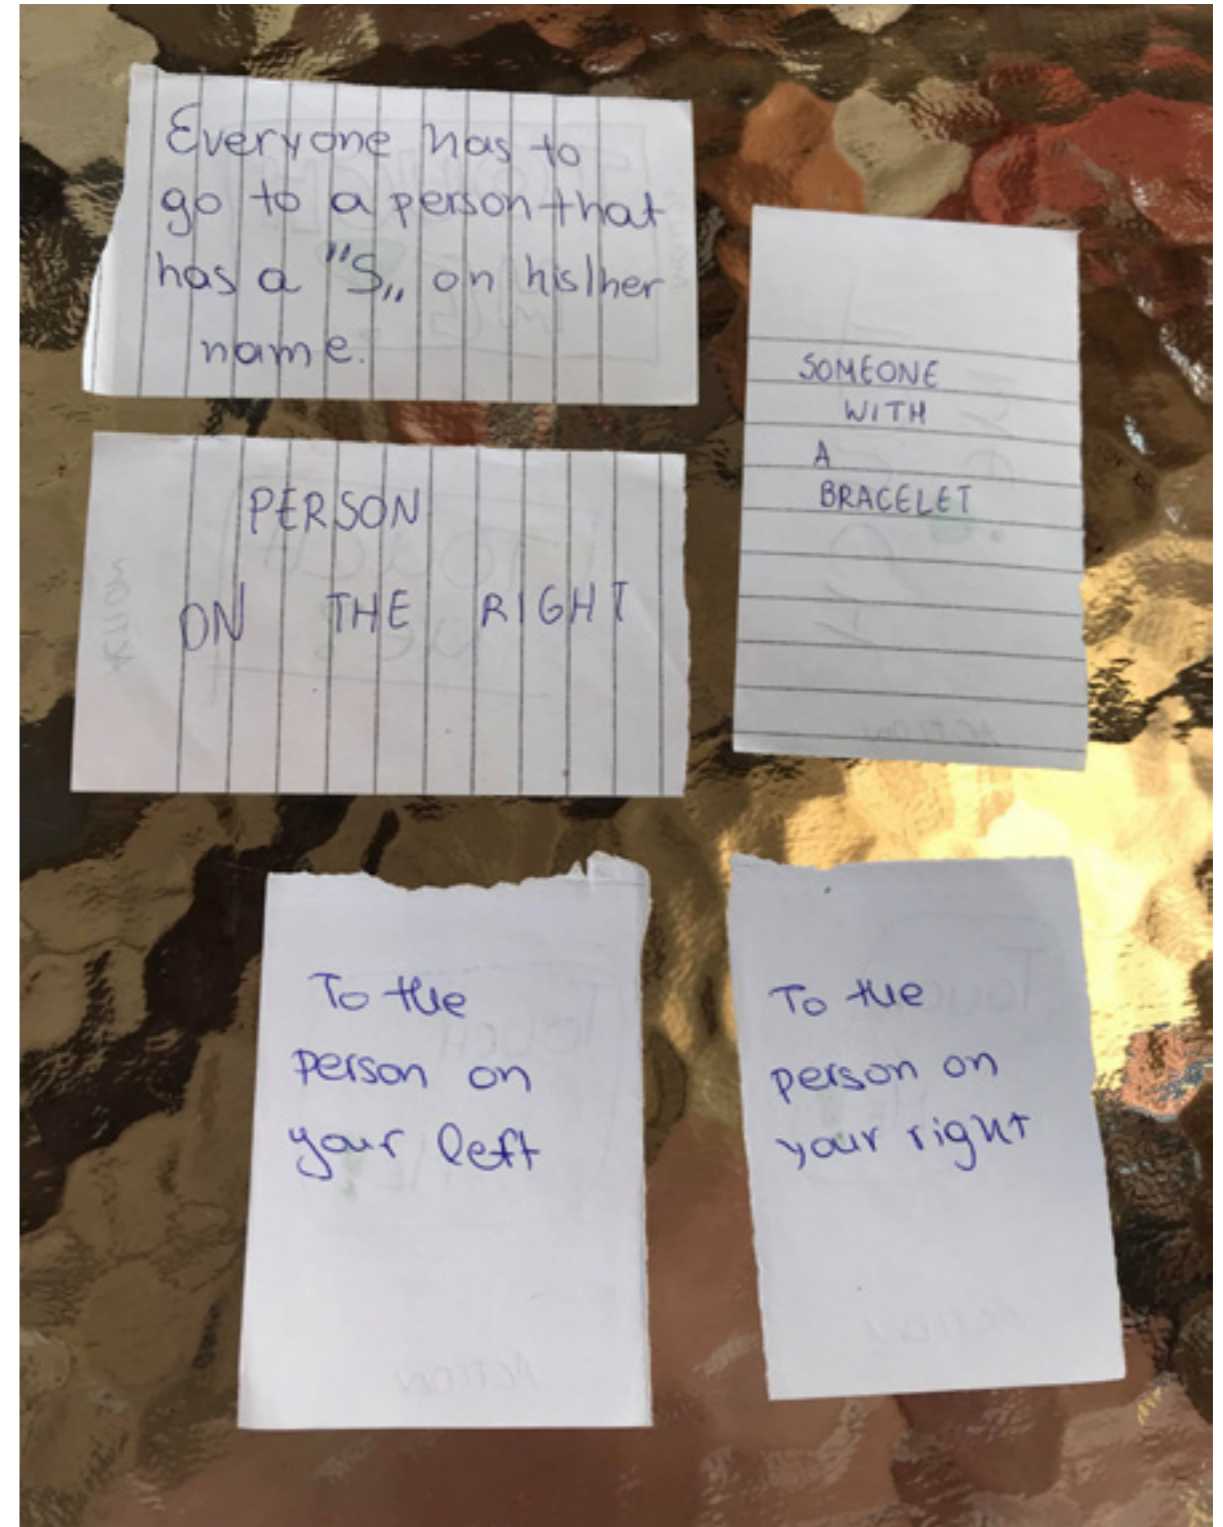 Everyone has to
go to a person that
has a "S„ on his/her
name.
SOMEONE
WITH
A
BRACELET
PERSON
ON THE RIGHT
To the
person on
your left
To the
person on
your right